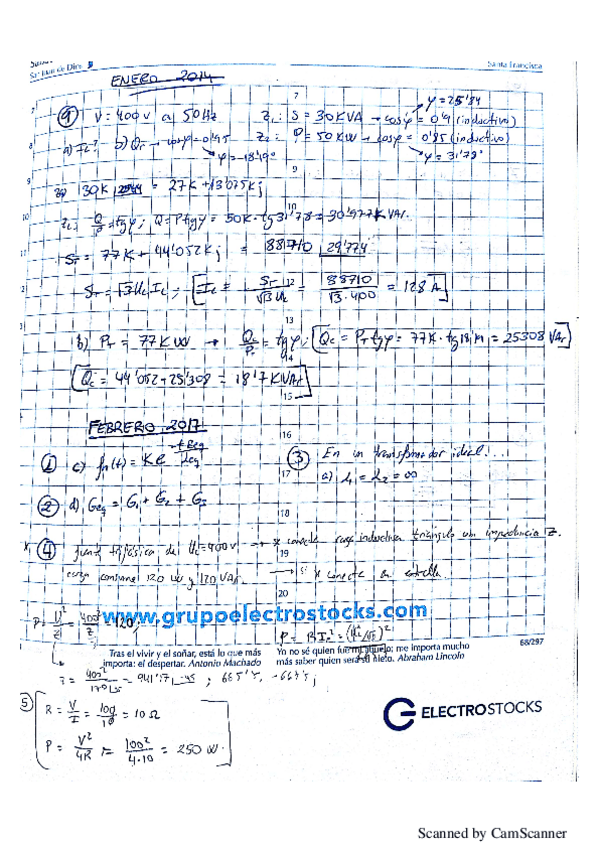 Sn Juan de Dios
Santa Francisca
ENERO 2014
7
φ = 25'84
9) V = 400V a 50Hz Z1: S = 30KVA → cosφ = 0'9 (inductivo)
8
a) IL? b) Qc → cosφ = 0'95 Z2: P = 50KW → cosφ = 0'85 (inductivo)
φ = 18'19° φ = 31'78°
9
30K = 27K + 13'075Kj
10
Z2: Q/P = tgφ; Q = P·tgφ = 50K·tg31'78 = 30'977KVAr
ST = 77K + 44'052Kj = 88710 29'774
12
ST = √3 UL IL; IL = ST/√3 UL = 88710/√3·400 = 128 A
13
b) PT = 77KW → Q/P = tgφ; Qc = PT tgφ = 77K · tg18'19 = 25308 VAr
14
Qc = 44'052 + 25'308 = 18'7 KVAr
15
FEBRERO 2017
16
1) c) fn(t) = K e^(-t Req/Leq) 3) En un transformador ideal...
17 a) L1 = L2 = ∞
2) d) Geq = G1 + G2 + G3
18
4) fuente trifásica de UL = 400V → x conecta carga inductiva triángulo con impedancia Z.
19
carga consume 120 W y 120 VAr. → si x conecta en estrella
20
P = V²/Z; 400²/Z = 120;
www.grupoelectrostocks.com
P = R IL² =
68/297
Tras el vivir y el soñar, está lo que más
importa: el despertar. Antonio Machado
Yo no sé quien fue mi abuelo; me importa mucho
más saber quien será su nieto. Abraham Lincoln
5) R = V/I = 100/10 = 10 Ω
P = V²/4R = 100²/4·10 = 250 W.
ELECTROSTOCKS
Scanned by CamScanner